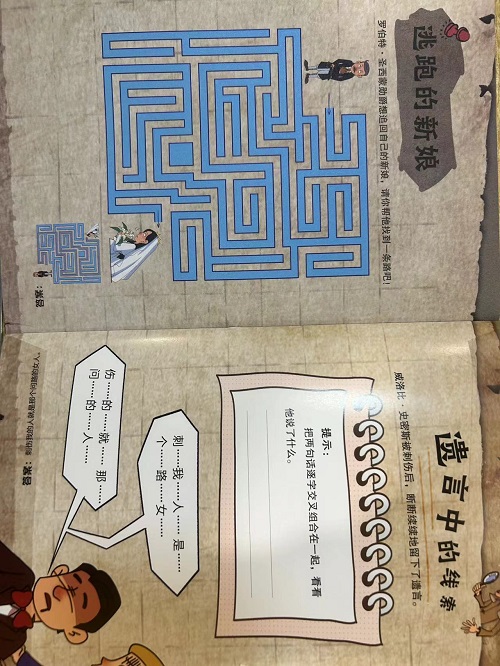 逃跑的新娘
罗伯特·圣西蒙勋爵想追回自己的新娘，请你帮他找到一条路吧！
答案：
遗言中的线索
威洛比·史密斯被刺伤后，断断续续地留下了遗言。
提示：
把两句话逐字交叉组合在一起，看看
他说了什么。
刺……我……人……是……
个……路……女……
伤……的……就……那……
问……的……人……
答案：刺伤我的人就是那个问路的女人。